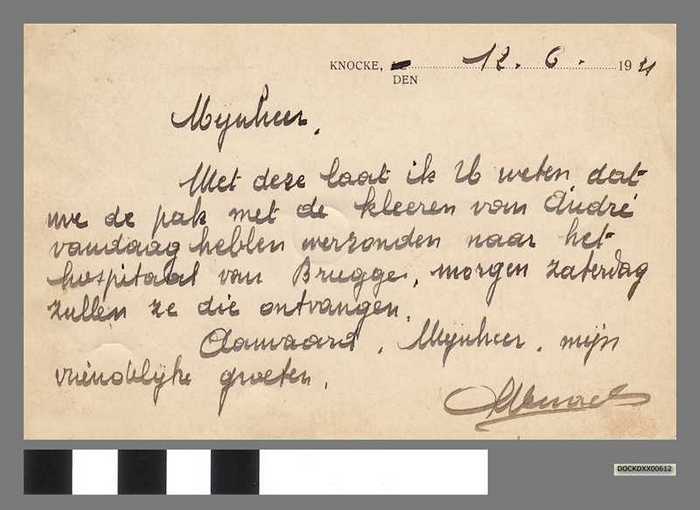 KNOCKE, DEN 12. 6. 19
Mynheer,
Met deze laat ik U weten dat
we de pak met de kleeren van André
vandaag hebben verzonden naar het
hospitaal van Brugge, morgen zaterdag
zullen ze die ontvangen.
Aanvaard, Mijnheer, mijn
vriendelijke groeten,
DOCKDXX00612